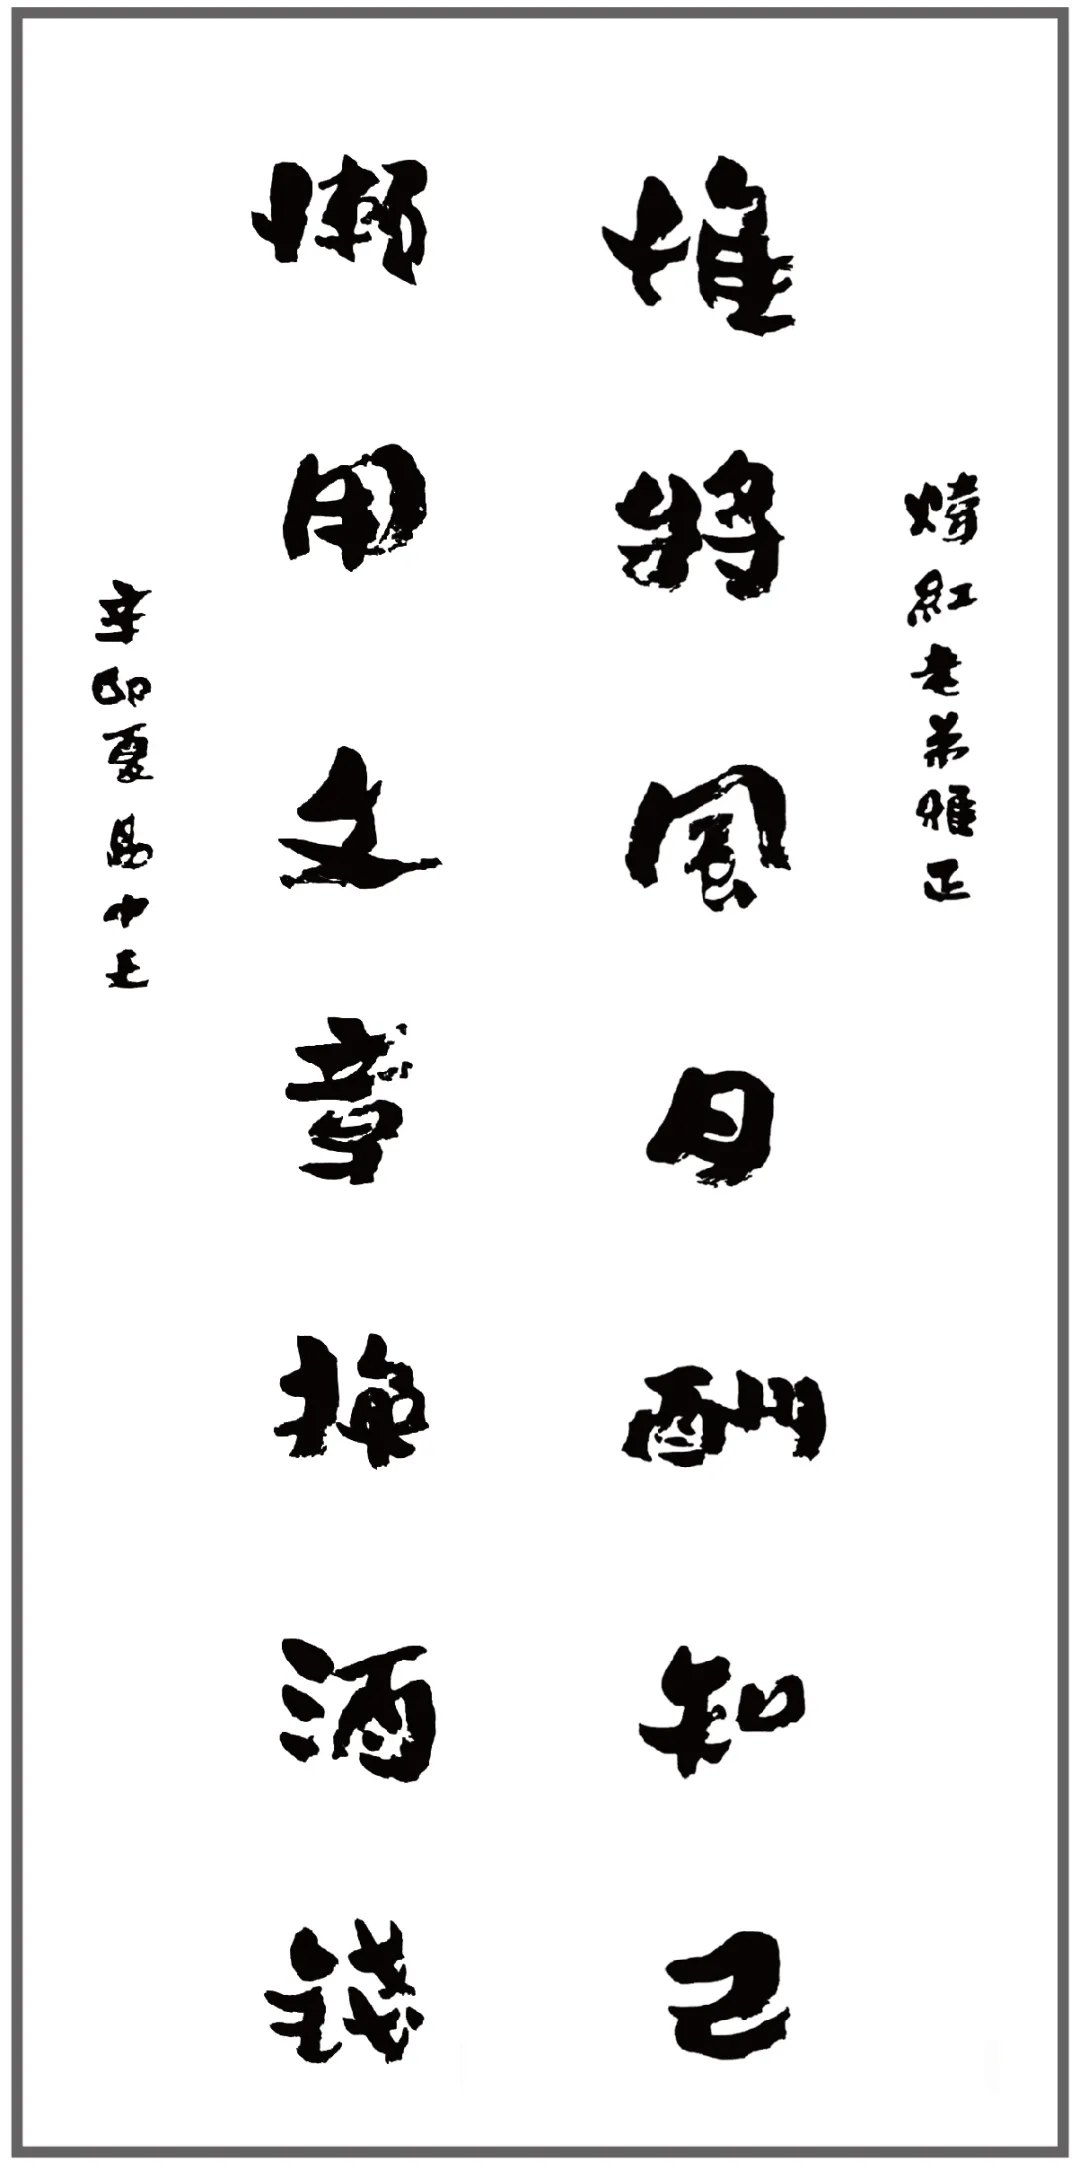 煒紅老弟雅正
惟將風月酬知己
懶用文章換酒錢
辛卯夏易中天